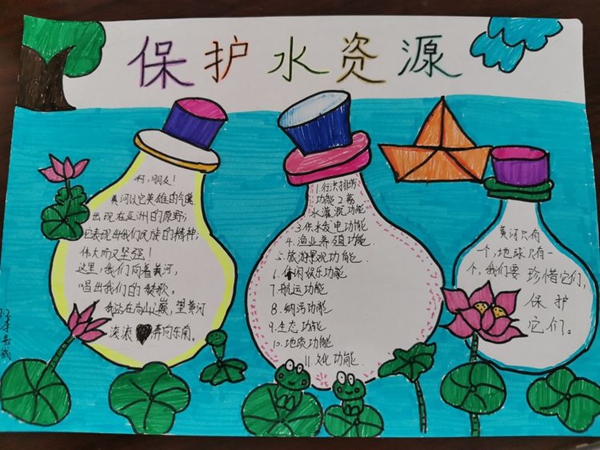 保护水资源
啊，朋友！
黄河以它英雄的气魄
出现在亚洲的原野；
它表现出我们民族的精神；
伟大而又坚强！
这里，我们向着黄河，
唱出我们的赞歌。
我站在高山之巅，望黄河
滚滚 奔向东南。
1.行洪排涝
功能 2.蓄
水灌溉功能
3.供水发电功能
4.渔业养殖功能
5.旅游景观功能
6.休闲娱乐功能
7.航运功能
8.纳污功能
9.生态功能
10.地质功能
11.文化功能
黄河只有
一个，地球只有一
个，我们要珍惜它们，
保护
它们。